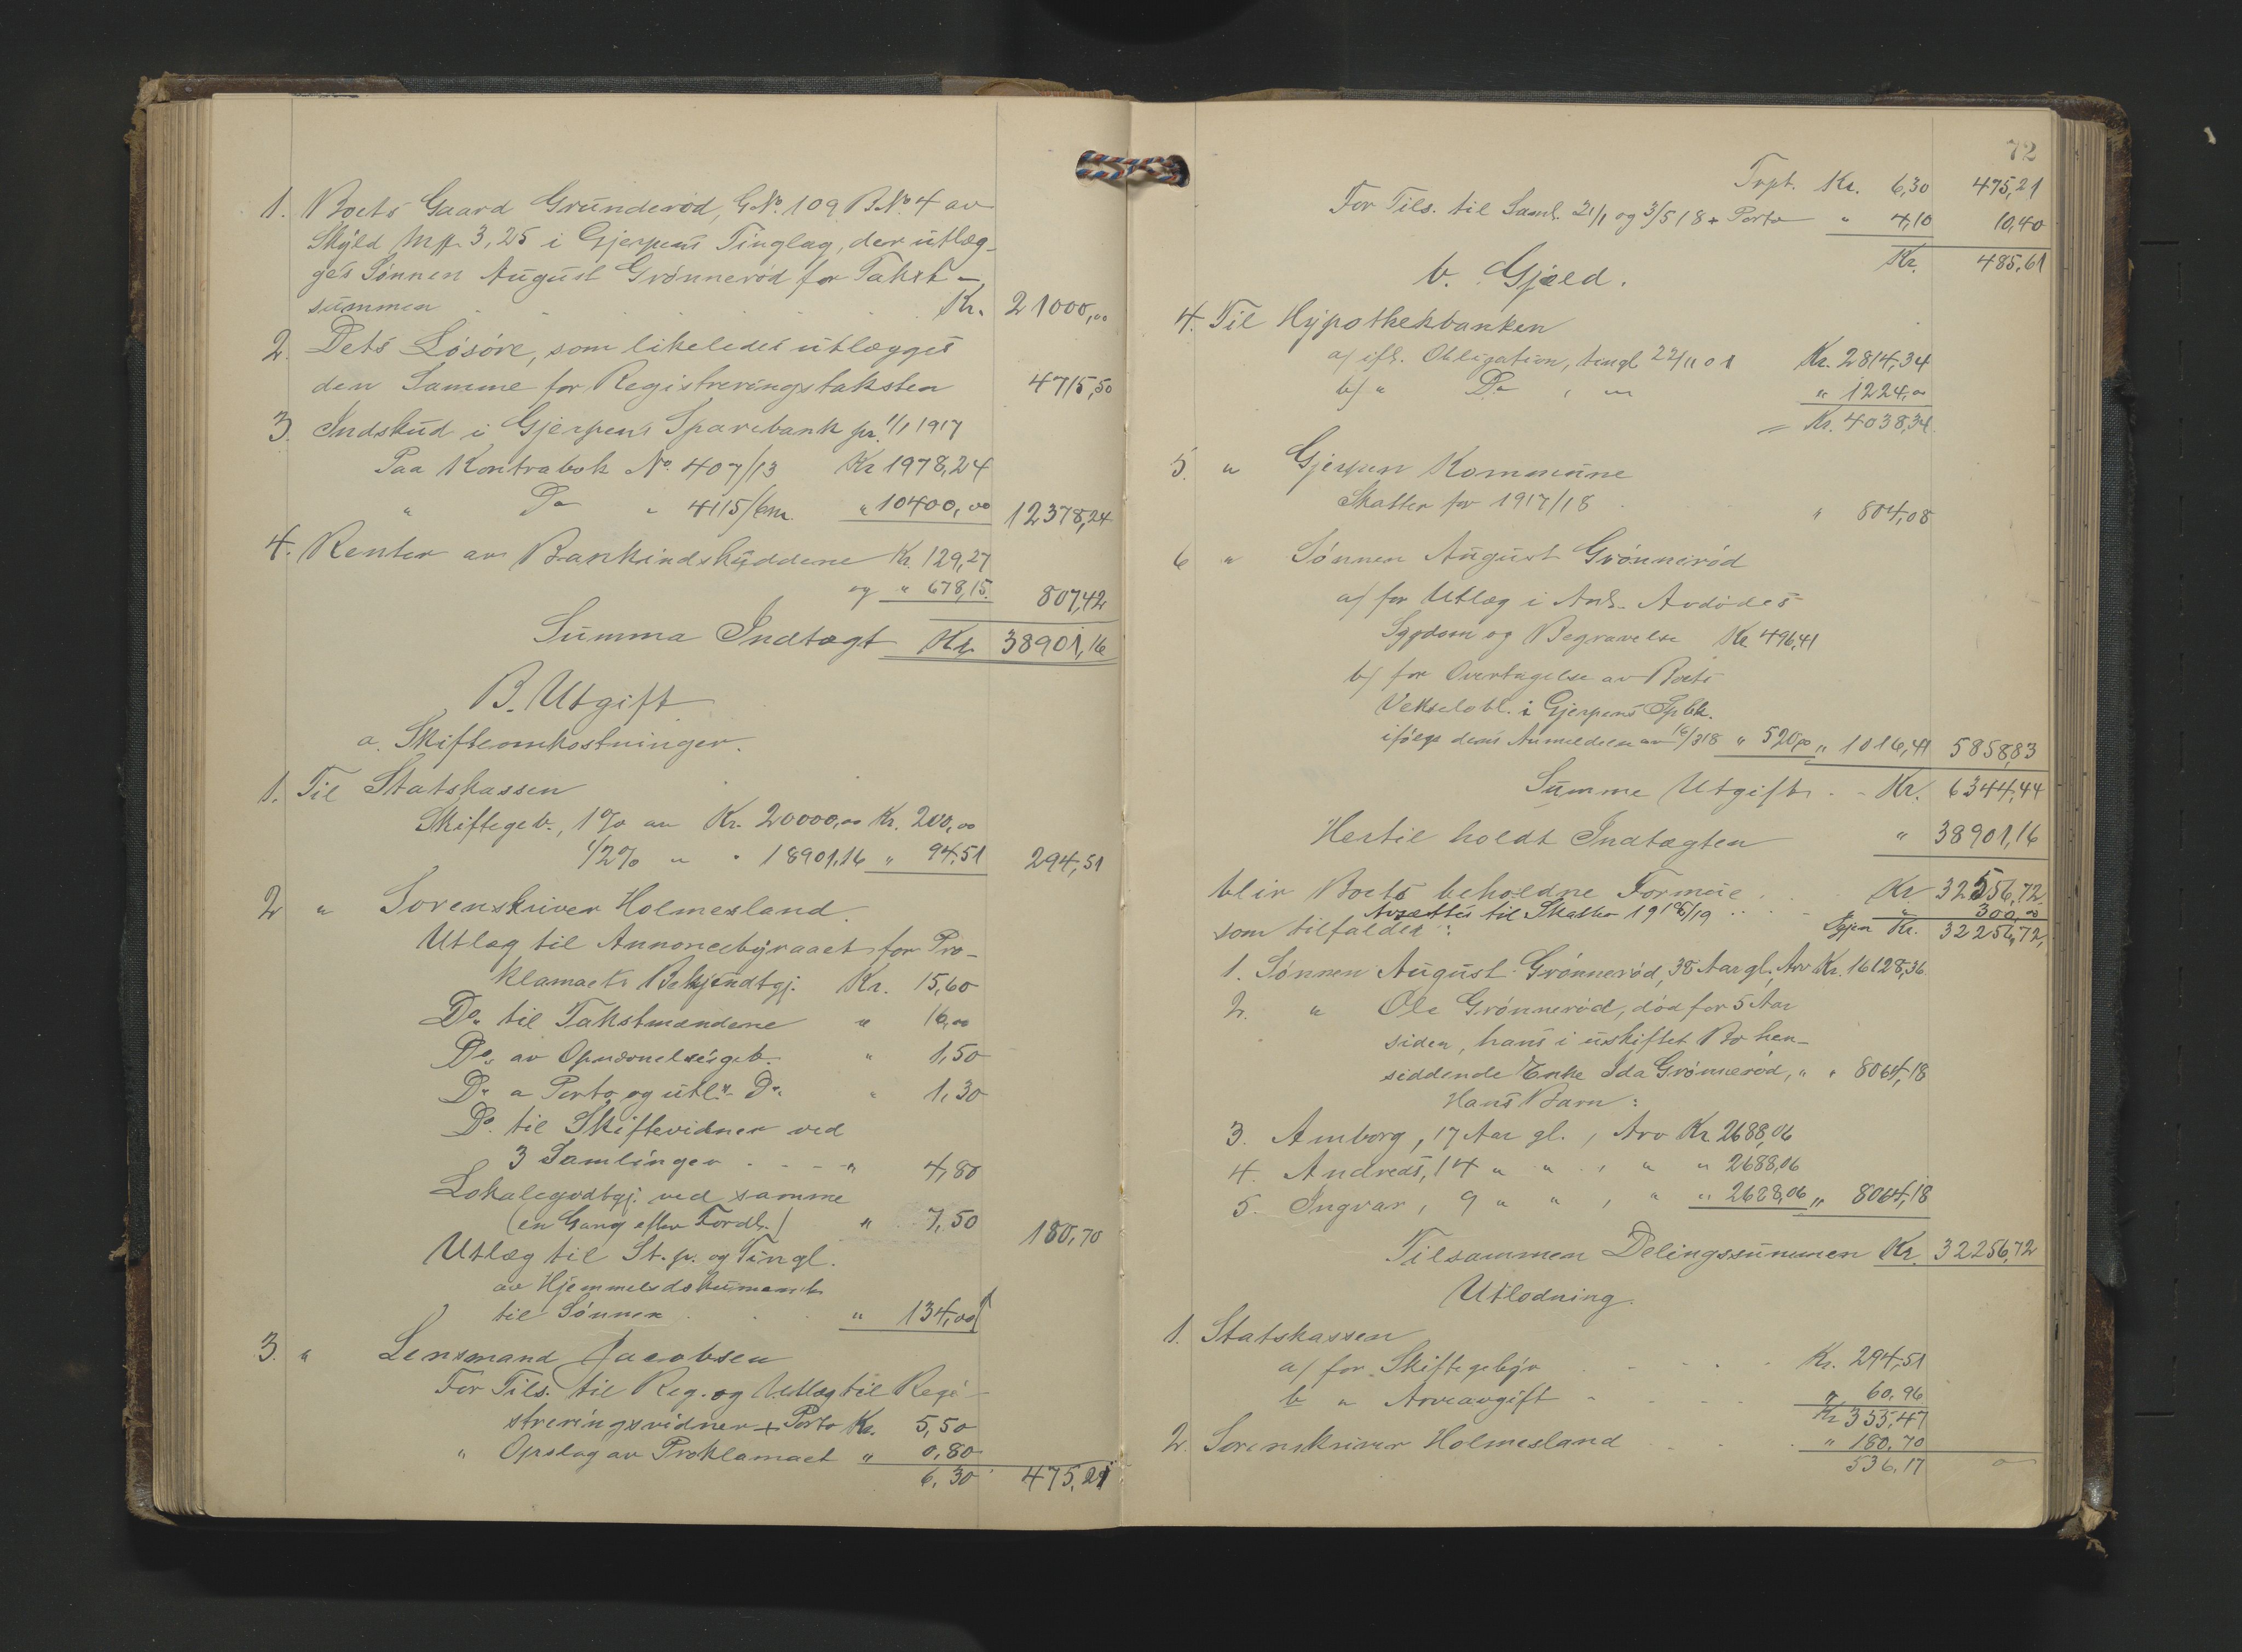 1. Boets Gaard Grunderød, GNo. 109 BNo 4 av
Skyld Mk 3,25 i Gjerpens Tinglag, der utlæg-
ges Sønnen August Grønnerød for Takst-
summen Kr. 21000,00
2. Dets Løsøre, som likeledes utlægges
den Samme for Registreringstaksten 4715,50
3. Indskud i Gjerpens Sparebank pr. 1/1 1917
Paa Kontrabok No 407/13 Kr 1978,24
" Do " 4115/6m. " 10400,00 12378,24
4. Renter av Bankindskuddene Kr. 129,27
og " 678,15. 807,42
Summa Indtægt Kr. 38901,16
B. Utgift
a. Skifteomkostninger.
1. Til Statskassen
Skiftegeb., 1% av Kr. 20000,00 Kr. 200,00
1/2% " " 18901,16 " 94,51 294,51
2 " Sorenskriver Holmesland.
Utlæg til Annoncebyraaet for Pro-
klamaets Bekjendtgj. Kr. 15,60
Do. til Takstmændene " 16,00
Do. av Opnævnelsesgeb. " 1,50
Do a Porto og utl. Do. " 1,30
Do. til Skiftevidner ved
3 Samlinger - - - " 4,80
Lokalegodtgj. ved samme
(en Gang efter Fordl.) " 7,50 180,70
Utlæg til St.p. og Tingl.
av Hjemmelsdokument
til Sønnen " 134,00
3. " Lensmand Jacobsen
For Tils. til Reg. og Utlæg til Regi-
streringsvidner + Porto Kr. 5,50
" Opslag av Proklamaet " 0,80
6,30 475,21
72
Trpt. Kr. 6,30 475,21
For Tils. til Saml. 21/1 og 3/5 18 + Porto " 4,10 10,40
Kr. 485,61
b. Gjæld.
4. Til Hypothekbanken
a/ ifl. Obligation, tingl 22/11 01 Kr. 2814,34
b/ " Do , " " 1224,00
= Kr. 4038,34
5. " Gjerpen Kommune
Skatter for 1917/18 " 804,08
6 " Sønnen August Grønnerød
a/ for Utlæg i Anl. Avdødes
Sygdom og Begravelse Kr 496,41
b/ for Overtagelse av Boets
Vekselobl. i Gjerpens Spbk.
ifølge dens Anmeldelse av 16/3 18 " 520,00 " 1016,41 5858,83
Summe Utgift . - Kr. 6344,44
Hertil holdt Indtægten " 38901,16
blir Boets beholdne Formue Kr 32556,72
Avsættes til Skatter 1918/19 " 300,00
som tilfalder: Igjen Kr. 32256,72,
1. Sønnen August Grønnerød, 38 Aar gl., Arv Kr. 16128,36
2. " Ole Grønnerød, død for 5 Aar
siden, hans i uskiftet Bo hen-
siddende Enke Ida Grønnerød, " " 8064,18
Hans Barn:
3. Amborg, 17 Aar gl., Arv Kr 2688,06
4. Andreas, 14 " " , " " 2688,06
5. Ingvar, 9 " " , " " 2688,06 " 8064,18
Tilsammen Delingssummen Kr. 32256,72
Utlodning.
1. Statskassen
a/ for Skiftegebyr - - - Kr. 294,51
b " Arveavgift - - - " 60,96
Kr 355,47
2. Sorenskriver Holmesland - - " 180,70
536,17